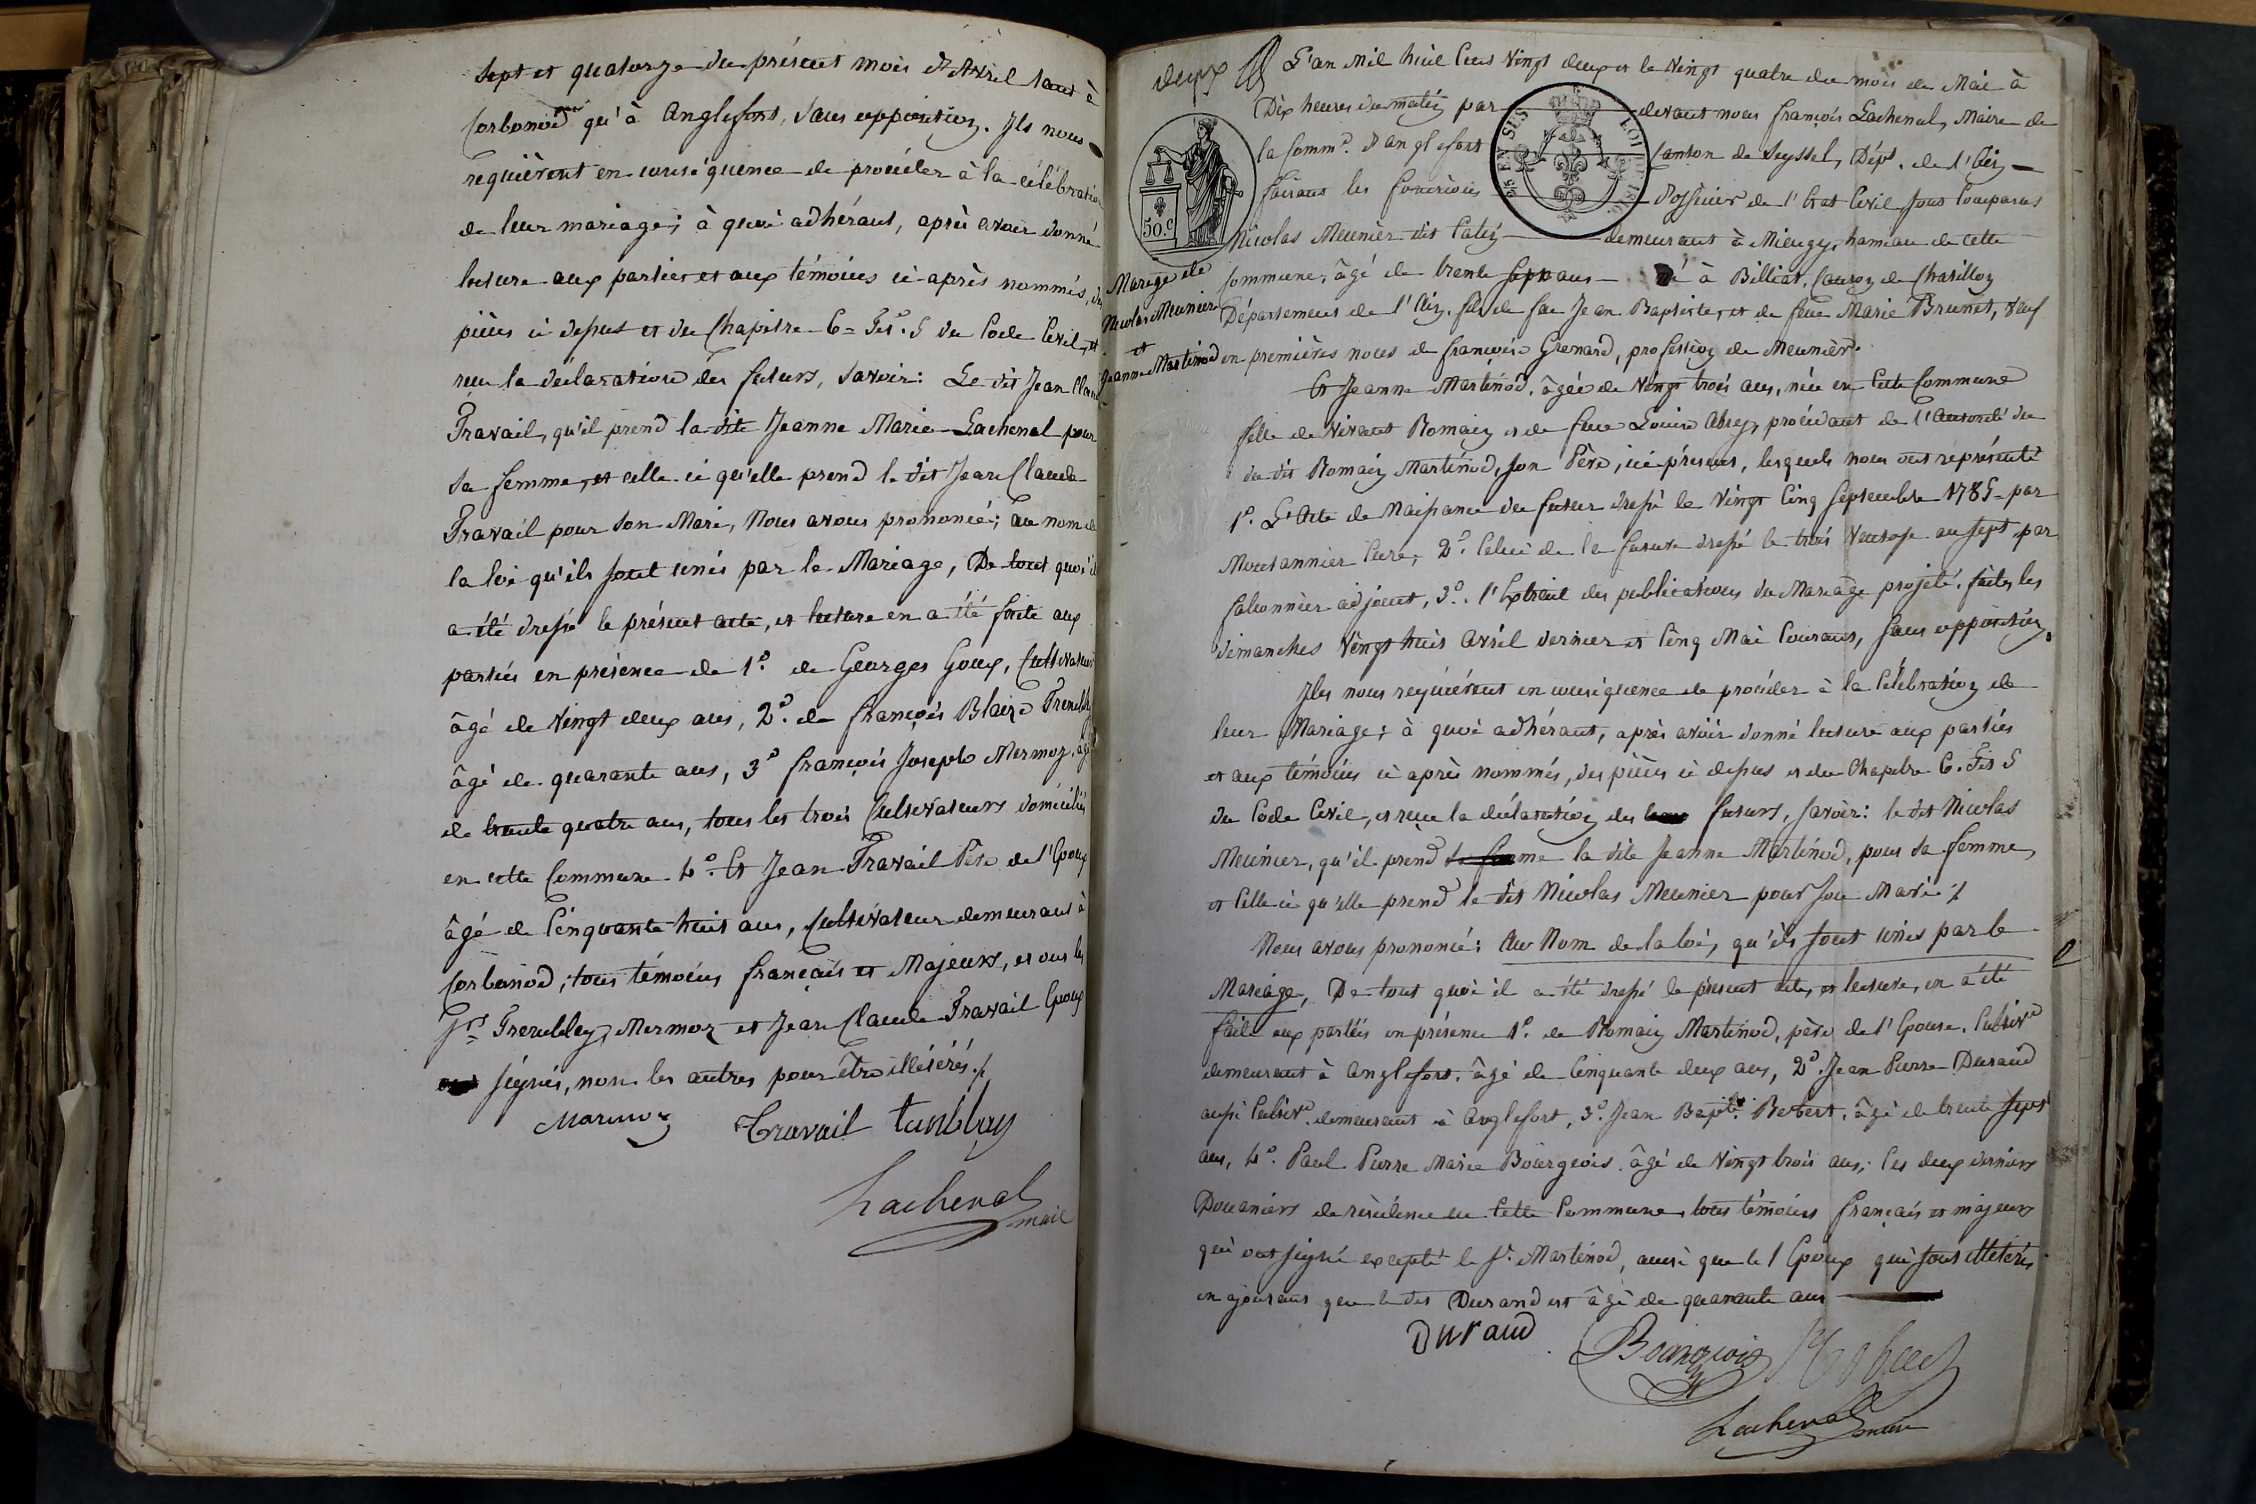 sept et quatorze du présent mois d'Avril tant à
Corbonod qu'à Anglefort, sans opposition. Ils nous
requièrent en conséquence de procéder à la célébration
de leur mariage; à quoi adhérant, après avoir donné
lecture aux parties et aux témoins ci-après nommés, des
pièces ci dessus et du Chapitre 6 = Tit. 5 du Code Civil, et
reçu la déclaration des futurs, savoir: Le dit Jean Claude
Travail, qu'il prend la dite Jeanne Marie Lachenal pour
sa femme, et celle ci qu'elle prend le dit Jean Claude
Travail pour son Mari, Nous avons prononcé; au nom de
la loi qu'ils sont unis par le Mariage, De tout quoi il
a été dressé le présent acte, et lecture en a été faite aux
parties en présence de 1º. de Georges Goux, Cultivateur
âgé de Vingt deux ans, 2º. de françois Blaize Trembley
âgé de quarante ans, 3º françois Joseph Mermoz, âgé
de trente quatre ans, tous les trois Cultivateurs domiciliés
en cette Commune 4º. Et Jean Travail Père de l'Epoux
âgé de Cinquante huit ans, Cultivateur demeurant à
Corbonod, tous témoins français et Majeurs, et ont les
Srs Trembley, Mermoz et Jean Claude Travail Epoux
signés, non les autres pour être illétérés ./.
Marmoz Travail tanblay
Lachenal maire
deux
L'an mil huit Cent Vingt deux et le Vingt quatre du mois de Mai à
Dix heures du matin par devant nous françois Lachenal, Maire de
la Comme. d'anglefort Canton de Seyssel, Dépt. de l'Ain
faisant les fonctions d'officier de l'Etat Civil, sont Comparus
Nicolas Meunier dit Catin demeurant à Mieugy, hameau de cette
Commune, âgé de trente sept ans né à Billiat, Canton de Chatillon
Département de l'Ain. fils de feu Jean Baptiste, et de feue Marie Brunet, veuf
en premières noces de françoise Grenard, profession de Meunier.
Mariage de
Nicolas Meunier
et
Jeanne Martinod
Et Jeanne Martinod, âgée de Vingt trois ans, née en Cette Commune
fille de Vivant Romain et de feue Louise Abry, procédant de l'autorité du
du dit Romain Martinod, son Père, ici présent, lesquels nous ont représenté
1º. L'Acte de Naissance du futur dressé le Vingt Cinq Septembre 1785 par
Montannier Curé, 2º. Celui de la future dressé le trois Ventose an sept par
falconnier adjoint, 3º. l'Extrait des publications du Mariage projeté, faites les
dimanches Vingt huit Avril dernier et Cinq Mai Courant, sans opposition.
Ils nous requièrent en conséquence de procéder à la Célébration de
leur Mariage; à quoi adhérant, après avoir donné lecture aux parties
et aux témoins ci après nommés, des pièces ci dessus et du Chapitre 6. Tit 5
du Code Civil, et reçu la déclaration des futurs, savoir: le dit Nicolas
Meunier, qu'il prend sa femme la dite Jeanne Martinod, pour sa femme,
et Celle ci qu'elle prend le dit Nicolas Meunier pour son Mari ./
Nous avons prononcé: Au Nom de la loi, qu'ils sont unis par le
Mariage, De tout quoi il a été dressé le présent acte, et lecture, en a été
faite aux parties en présence 1º. de Romain Martinod, père de l'Epouse, Cultivr
demeurant à Anglefort, âgé de Cinquante deux ans, 2º. Jean Pierre Durand
aussi Cultivr. demeurant à Anglefort, 3º. Jean Bapte. Berbert, âgé de trente sept
ans, 4º. Paul Pierre Marie Bourgeois, âgé de Vingt trois ans, les deux derniers
Douaniers de résidence en Cette Commune, tous témoins français et majeurs
qui ont signé excepté le Sr. Martinod, ainsi que l'Epoux qui sont illétérés
en ajoutant que le dit Durand est âgé de quarante ans
Durand Bourgeois
Lachenal maire
50.c